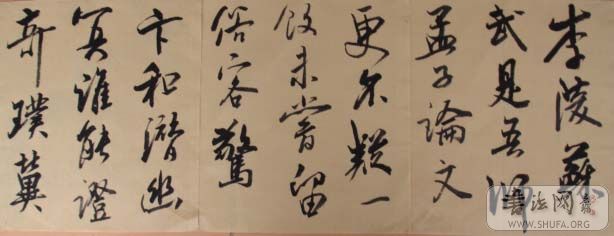 李陵蘇
武是吾師
孟子論文
更不疑一
飯未嘗留
俗客驚
卞和潛幽
冥誰能證
奇璞冀
书法网
WWW.SHUFA.ORG